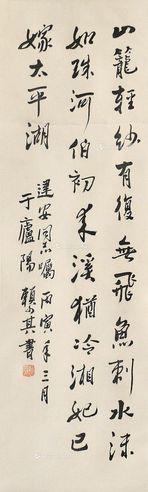 山籠輕紗有復無飛魚刺水沫
如珠河伯初來溪猶冷湘妃已
嫁太平湖
建安同志囑 丙寅年三月
于廬陽 賴少其書